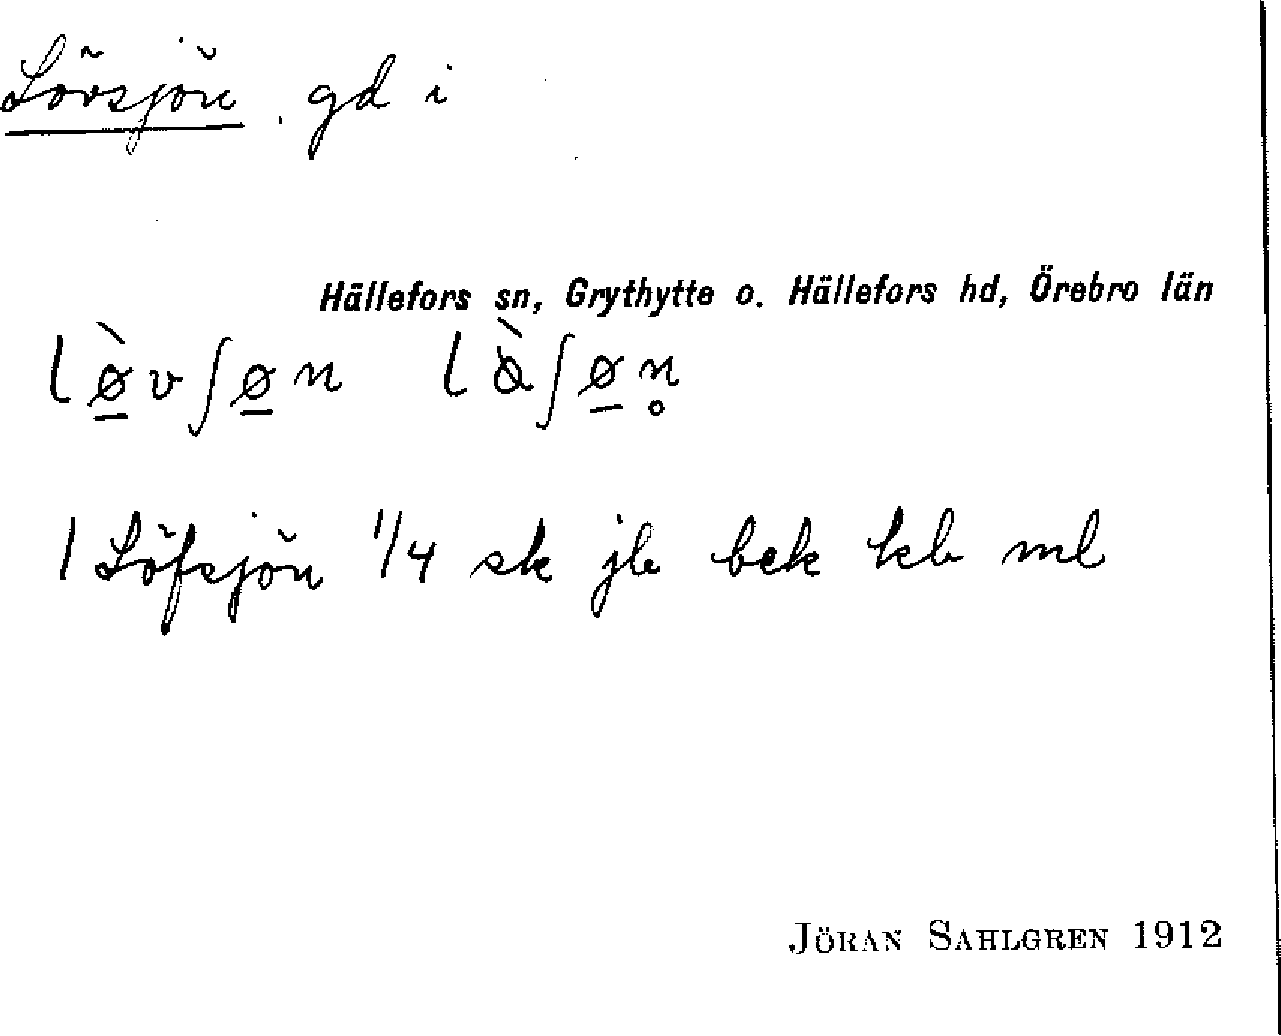 Lövsjön. gd i
Hällefors sn, Grythytte o. Hällefors hd, Örebro län
lø̠̀vʃø̠n
1 Löfsjön 1/4 sk jb bek kb ml
JÖRAN SAHLGREN 1912